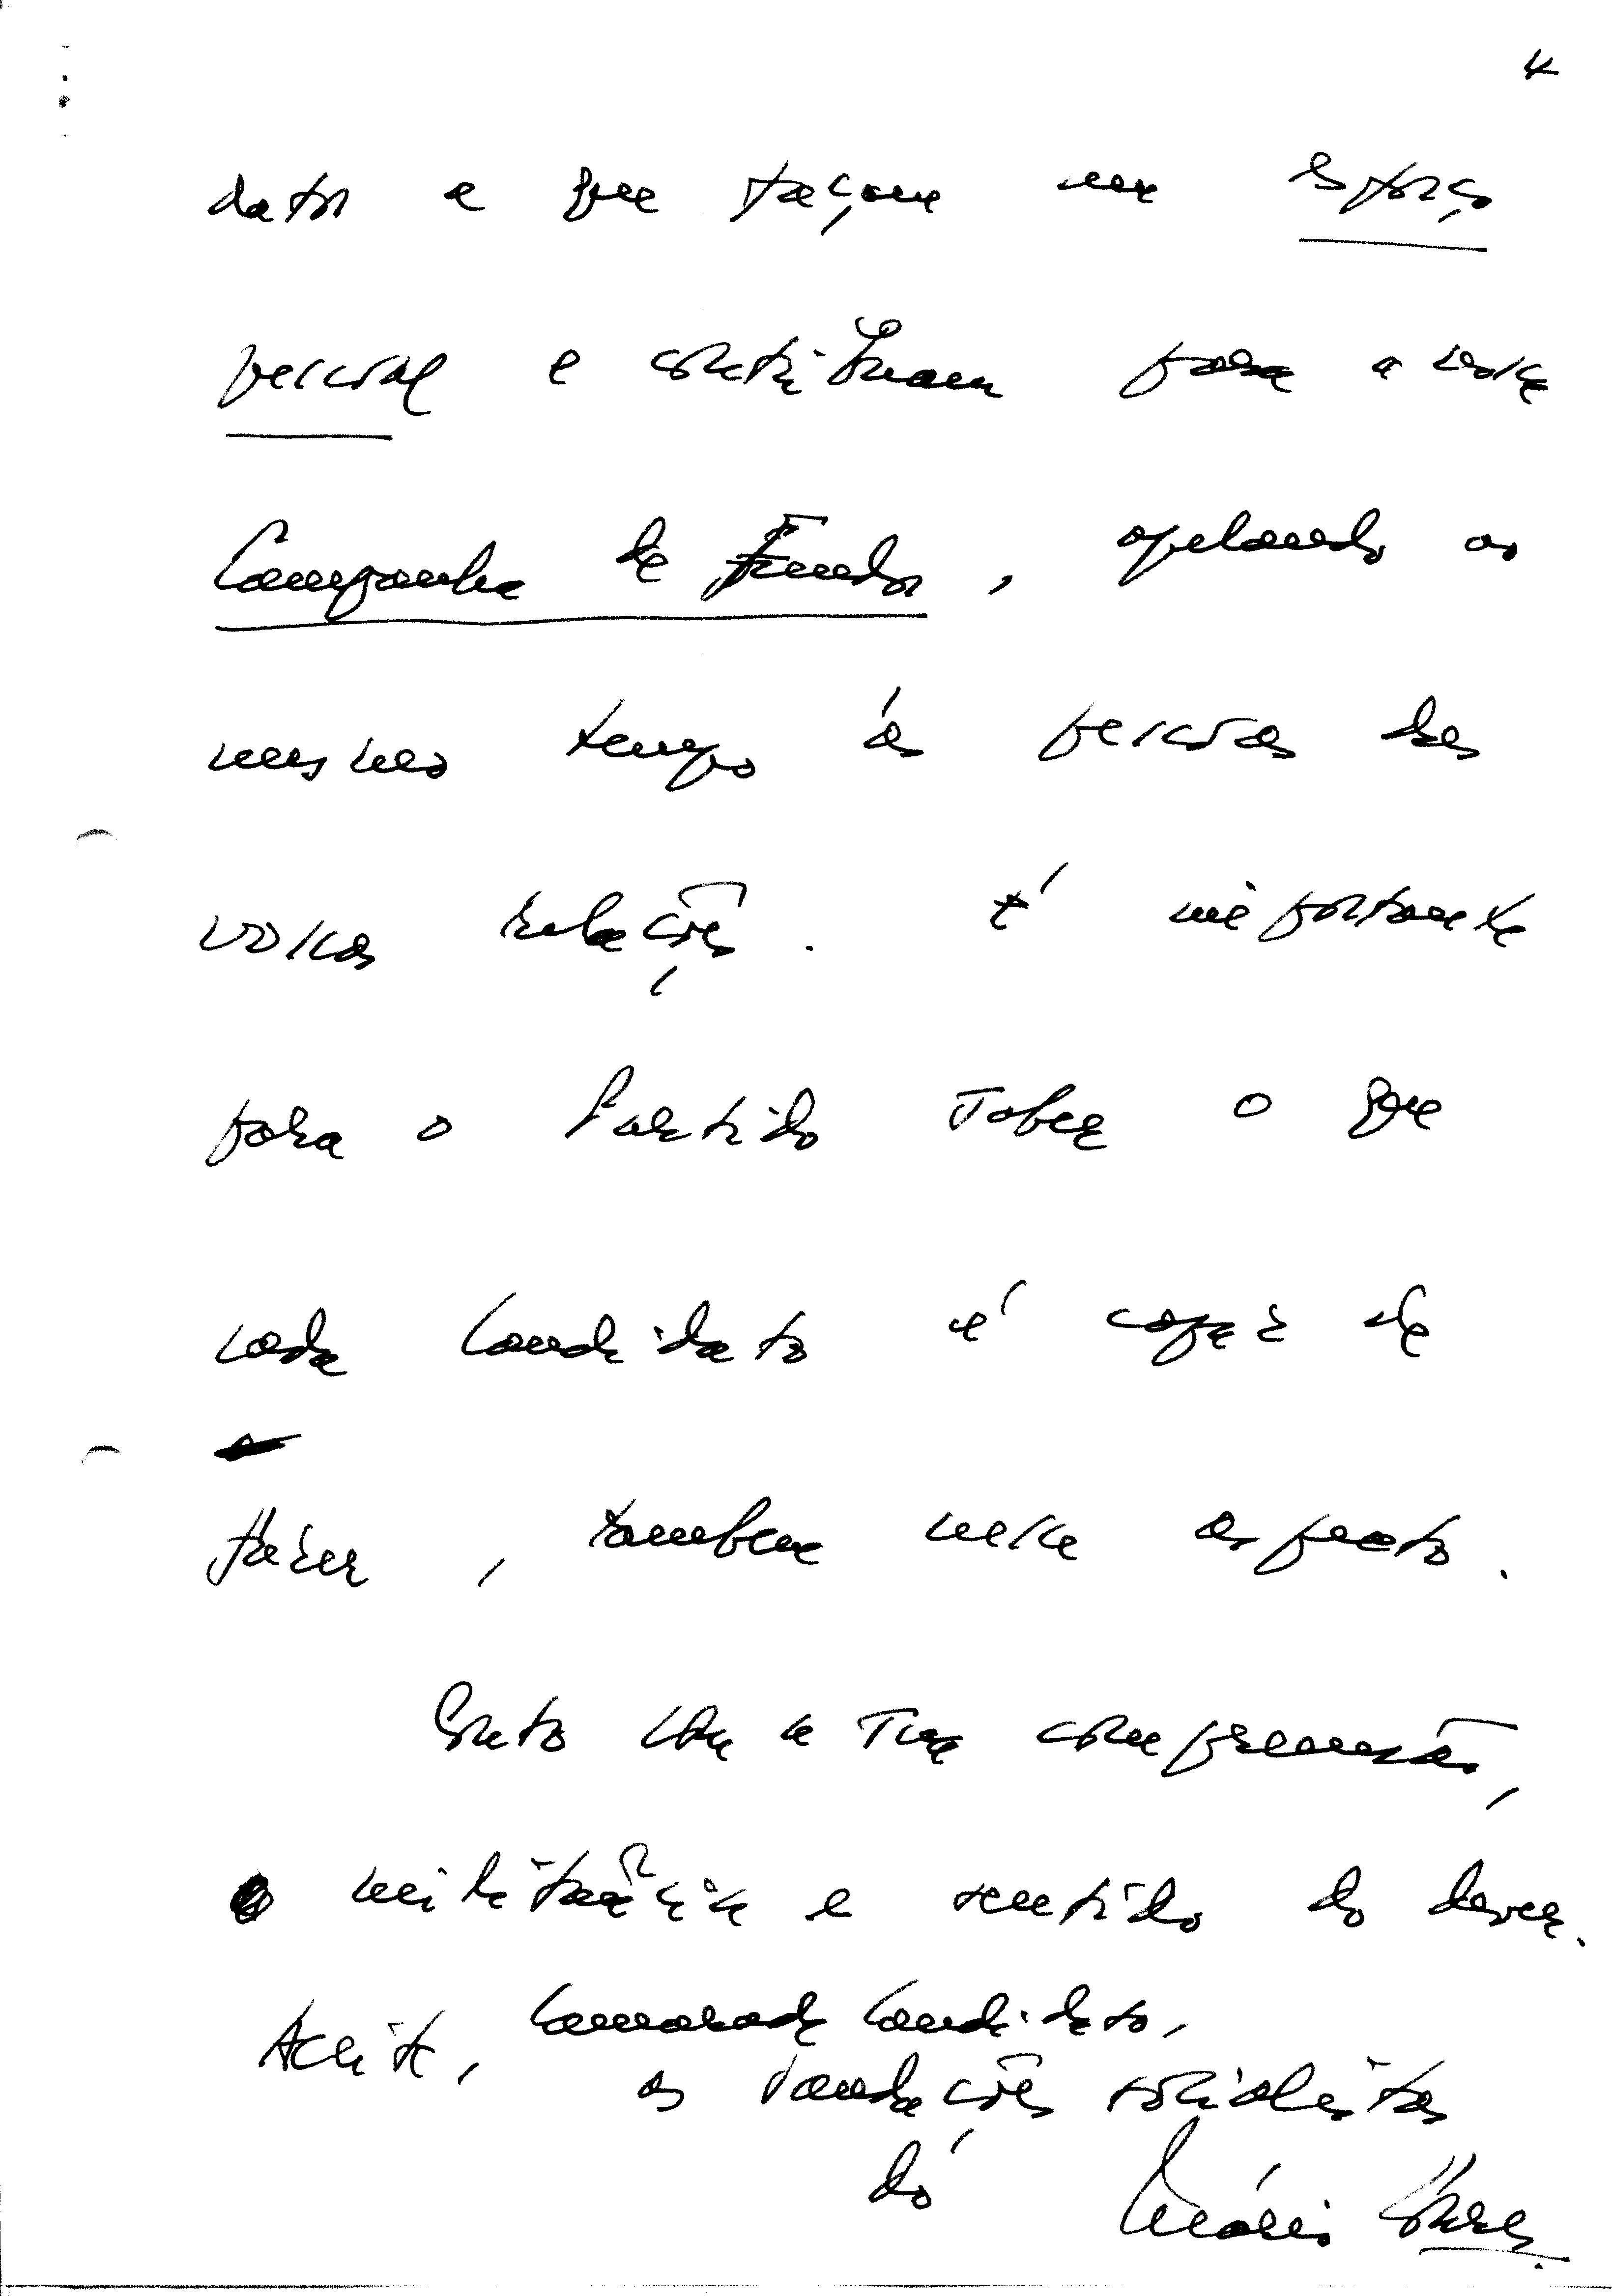 4
datos e que façam um esforço
pessoal e contribuam para a nossa
Campanha de Fundos, apelando ao
mesmo tempo às pessoas das
vossas relações. É importante
para o Partido saber o que
cada Candidato é capaz de
fazer, também nesse aspecto.
Conto com a tua compreensão,
militância e sentido do dever.
Aceita, Camarada Candidato,
as saudações socialistas
do Mário Soares